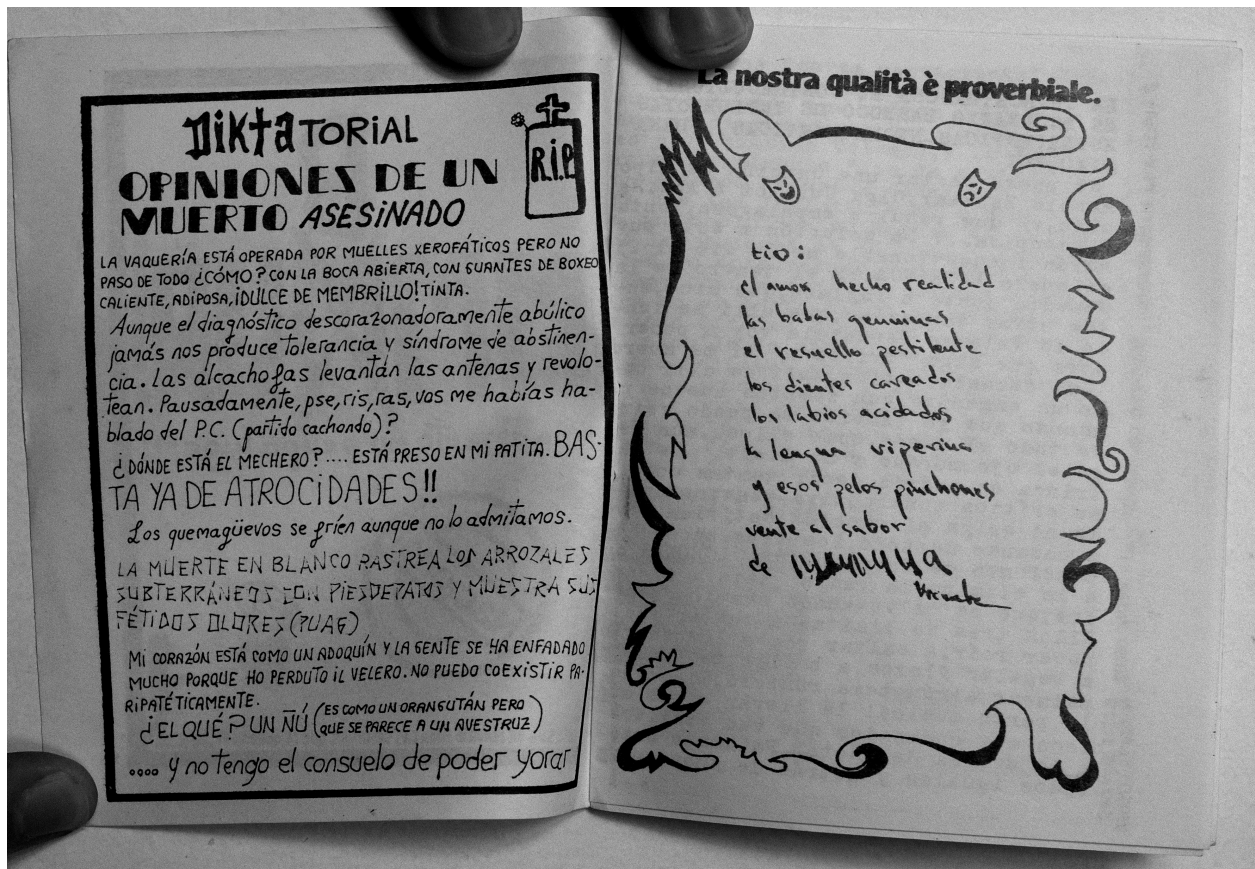 DiktaTORIAL
OPINIONES DE UN
MUERTO ASESINADO
R.I.P
LA VAQUERÍA ESTÁ OPERADA POR MUELLES XEROFÁTICOS PERO NO
PASO DE TODO ¿CÓMO? CON LA BOCA ABIERTA, CON GUANTES DE BOXEO
CALIENTE, ADIPOSA, ¡DULCE DE MEMBRILLO! TINTA.
Aunque el diagnóstico descorazonadoramente abúlico
jamás nos produce tolerancia y síndrome de abstinen-
cia. Las alcachofas levantán las antenas y revolo-
tean. Pausadamente, pse, ris, ras, vos me habías ha-
blado del P.C. (partido cachondo)?
¿DÓNDE ESTÁ EL MECHERO?.... ESTÁ PRESO EN MI PATITA. BAS-
TA YA DE ATROCIDADES!!
Los quemagüevos se fríen aunque no lo admitamos.
LA MUERTE EN BLANCO RASTREA LOS ARROZALES
SUBTERRÁNEOS CON PIESDEPATOS Y MUESTRA SUS
FÉTIDOS OLORES (PUAG)
MI CORAZÓN ESTÁ COMO UN ADOQUÍN Y LA GENTE SE HA ENFADADO
MUCHO PORQUE HO PERDUTO IL VELERO. NO PUEDO COEXISTIR PA-
RIPATÉTICAMENTE.
¿EL QUÉ? UN ÑÚ (ES COMO UN ORANGUTÁN PERO
QUE SE PARECE A UN AVESTRUZ)
.... y no tengo el consuelo de poder yorar
La nostra qualità è proverbiale.
tio:
el amor hecho realidad
las babas genuinas
el resuello pestilente
los dientes careados
los labios acidados
la lengua viperina
y esos pelos pinchones
vente al sabor
de